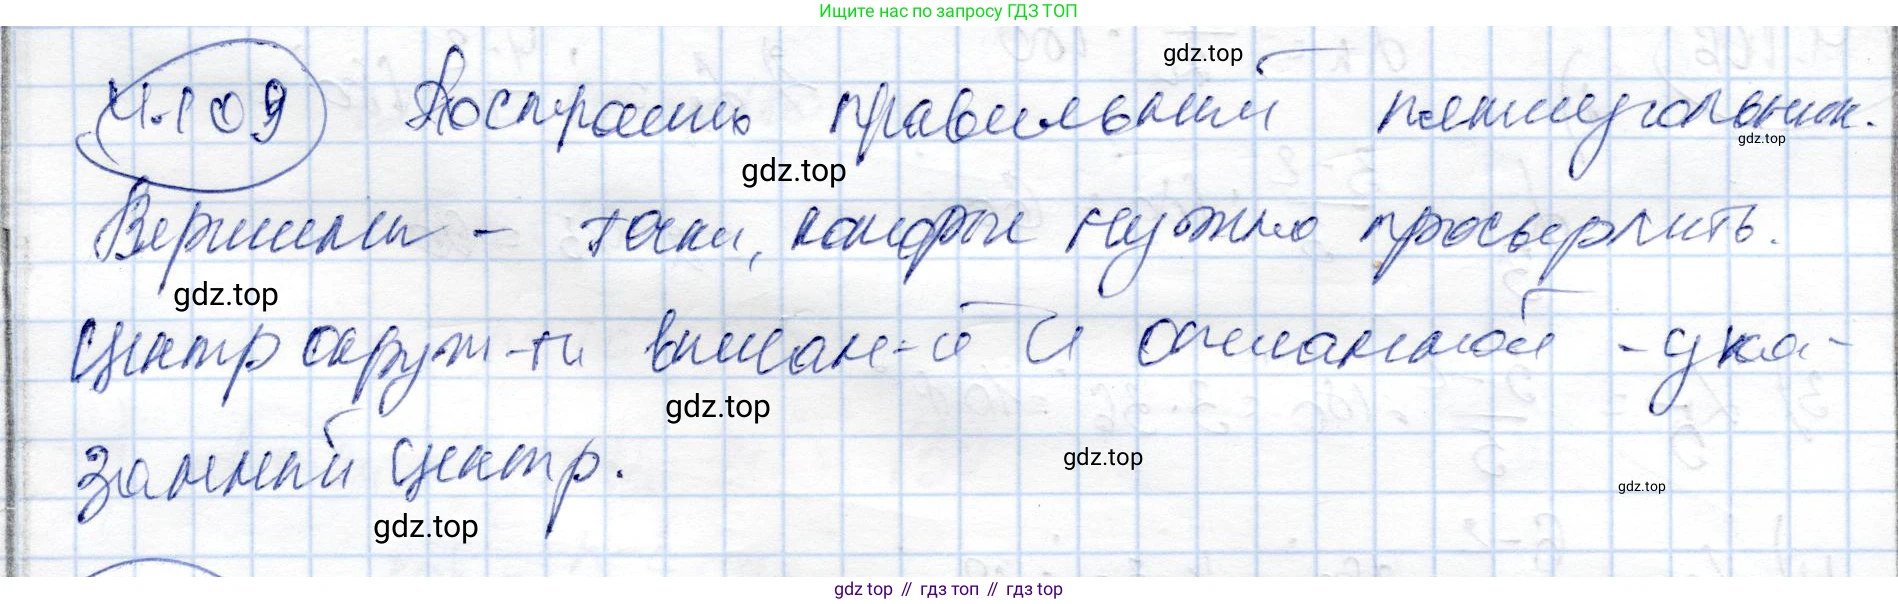 Ищите нас по запросу ГДЗ ТОП
gdz.top
4.109 Построить правильный пятиугольник.
gdz.top
gdz.top
Вершины - точки, которые нужно просверлить.
gdz.top
Центр окруж-ти вписан-й и описанной - ука-
gdz.top
занный центр.
gdz.top
gdz.top
gdz.top
gdz.top // гдз топ // гдз top